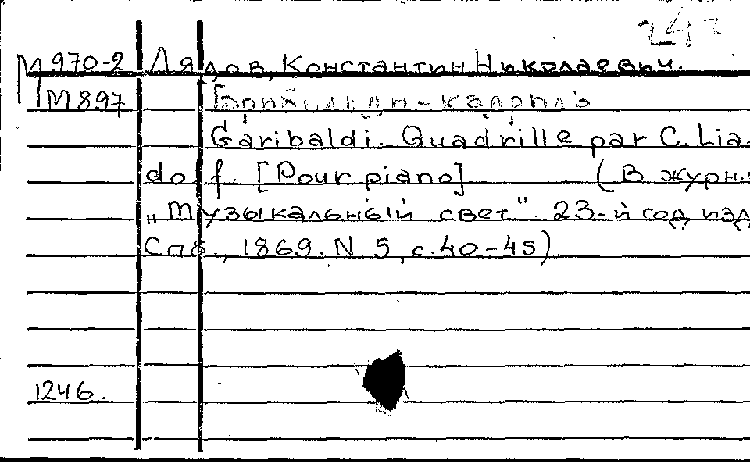 М 970-2 Лядов, Константин Николаевич.
М 897
Garibaldi. Quadrille par C. Lia-
doff. [Pour piano] (В журн.
„Музыкальный свет". 23-й год изд
Спб., 1869. N 5, с. 40-45)
1246.